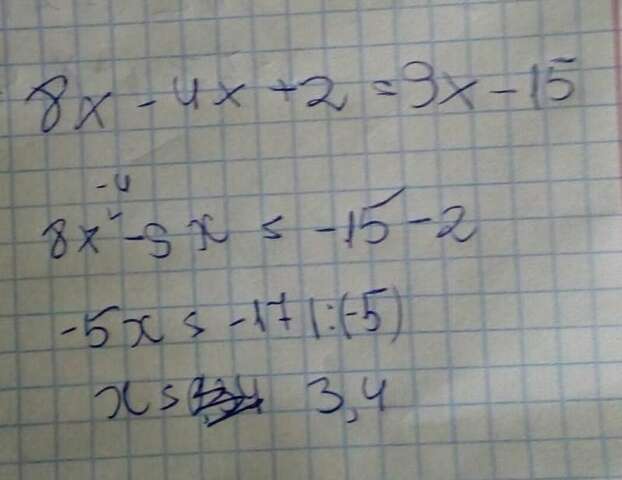 8x - 4x + 2 = 9x - 15
-4
8x - 9x = -15 - 2
-5x = -17 |:(-5)
x = 3,4